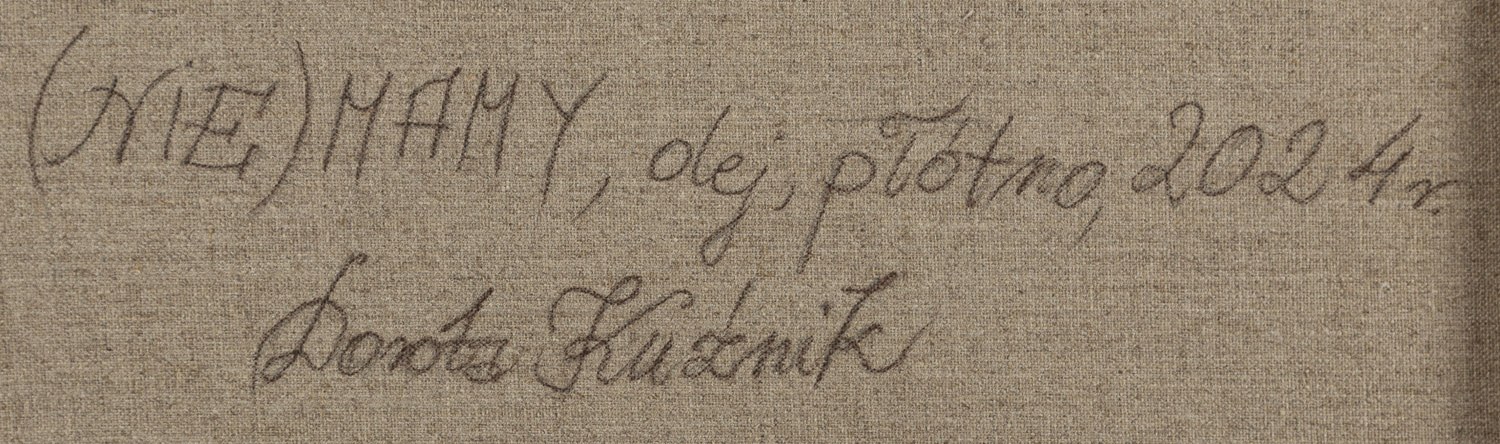 (NIE)MAMY, olej, płótno, 2024r.
Dorota Kuźnik